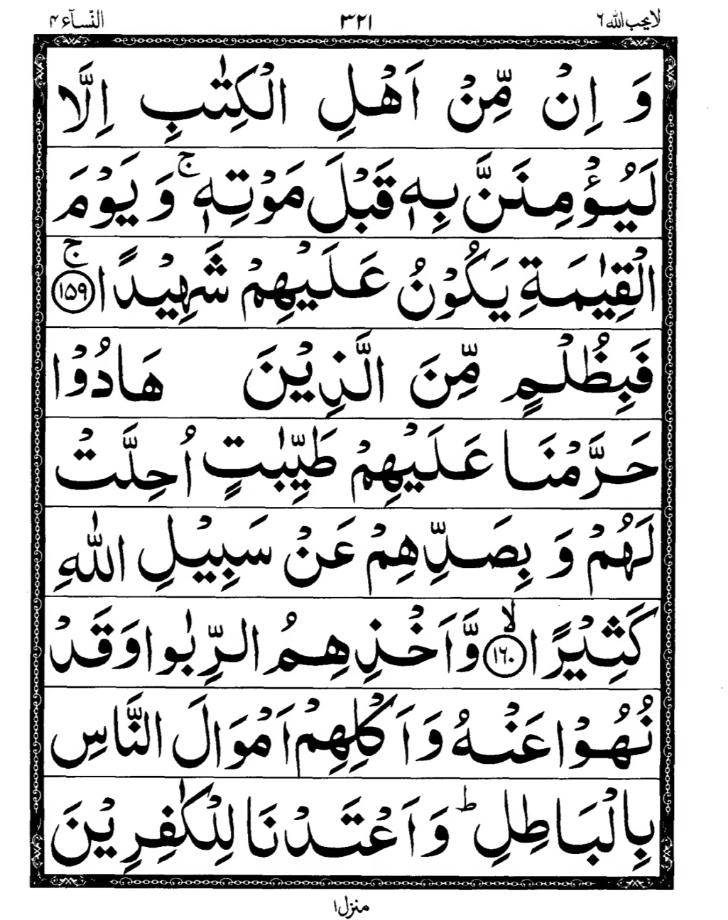 لا یحب الله ٦ ٣٢١ النسآء ٤
وَ اِنْ مِّنْ اَهْلِ الْكِتٰبِ اِلَّا
لَیُؤْمِنَنَّ بِهٖ قَبْلَ مَوْتِهٖ ۚ وَ یَوْمَ
الْقِیٰمَةِ یَكُوْنُ عَلَیْهِمْ شَهِیْدًا ۚ ﴿۱۵۹﴾
فَبِظُلْمٍ مِّنَ الَّذِیْنَ هَادُوْا
حَرَّمْنَا عَلَیْهِمْ طَیِّبٰتٍ اُحِلَّتْ
لَهُمْ وَ بِصَدِّهِمْ عَنْ سَبِیْلِ اللّٰهِ
كَثِیْرًا ۙ ﴿۱۶۰﴾ وَّ اَخْذِهِمُ الرِّبٰوا وَ قَدْ
نُهُوْا عَنْهُ وَ اَكْلِهِمْ اَمْوَالَ النَّاسِ
بِالْبَاطِلِ ؕ وَ اَعْتَدْنَا لِلْكٰفِرِیْنَ
منزل ١